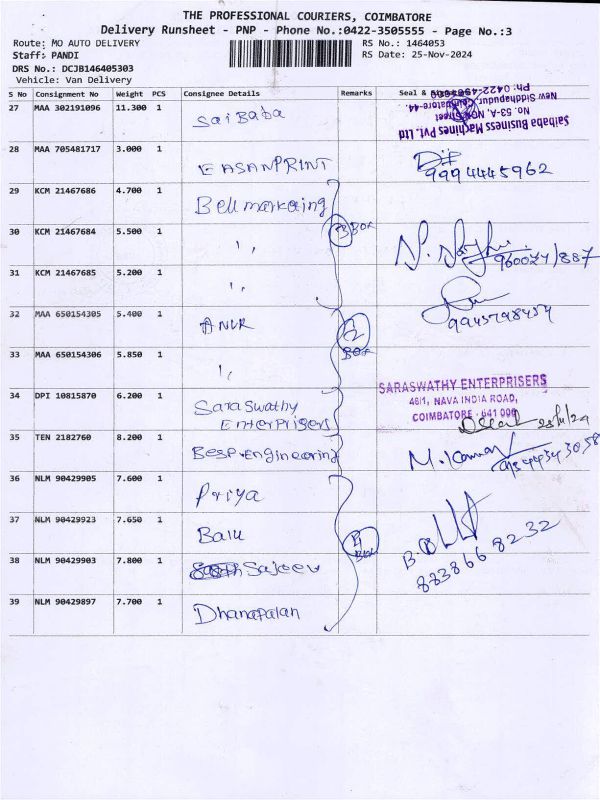 THE PROFESSIONAL COURIERS, COIMBATORE
Delivery Runsheet - PNP - Phone No.:0422-3505555 - Page No.:3
Route: MO AUTO DELIVERY RS No.: 1464053
Staff: PANDI RS Date: 25-Nov-2024
DRS No.: DCJB146405303
Vehicle: Van Delivery
S No Consignment No Weight PCS Consignee Details Remarks Seal &
27 MAA 302191096 11.300 1 Sai Baba
Saibaba Business Machines Pvt. Ltd
No. 53-A, NDK Street
New Siddhapudur, Coimbatore-44.
28 MAA 705481717 3.000 1 EASANPRINT 9994445962
29 KCM 21467686 4.700 1 Bell markaing
30 KCM 21467684 5.500 1 " 3 Box
31 KCM 21467685 5.200 1 "
32 MAA 650154305 5.400 1 ANUR 2 Box
33 MAA 650154306 5.850 1 "
34 DPI 10815870 6.200 1 Saraswathy
Enterprisers
SARASWATHY ENTERPRISERS
46/1, NAVA INDIA ROAD,
COIMBATORE - 641 006
35 TEN 2182760 8.200 1 Besp Engineering M. Kannan
36 NLM 90429905 7.600 1 Priya
37 NLM 90429923 7.650 1 Balu 4 Box
38 NLM 90429903 7.800 1 Sajeev 883866 8232
39 NLM 90429897 7.700 1 Dhanapalan